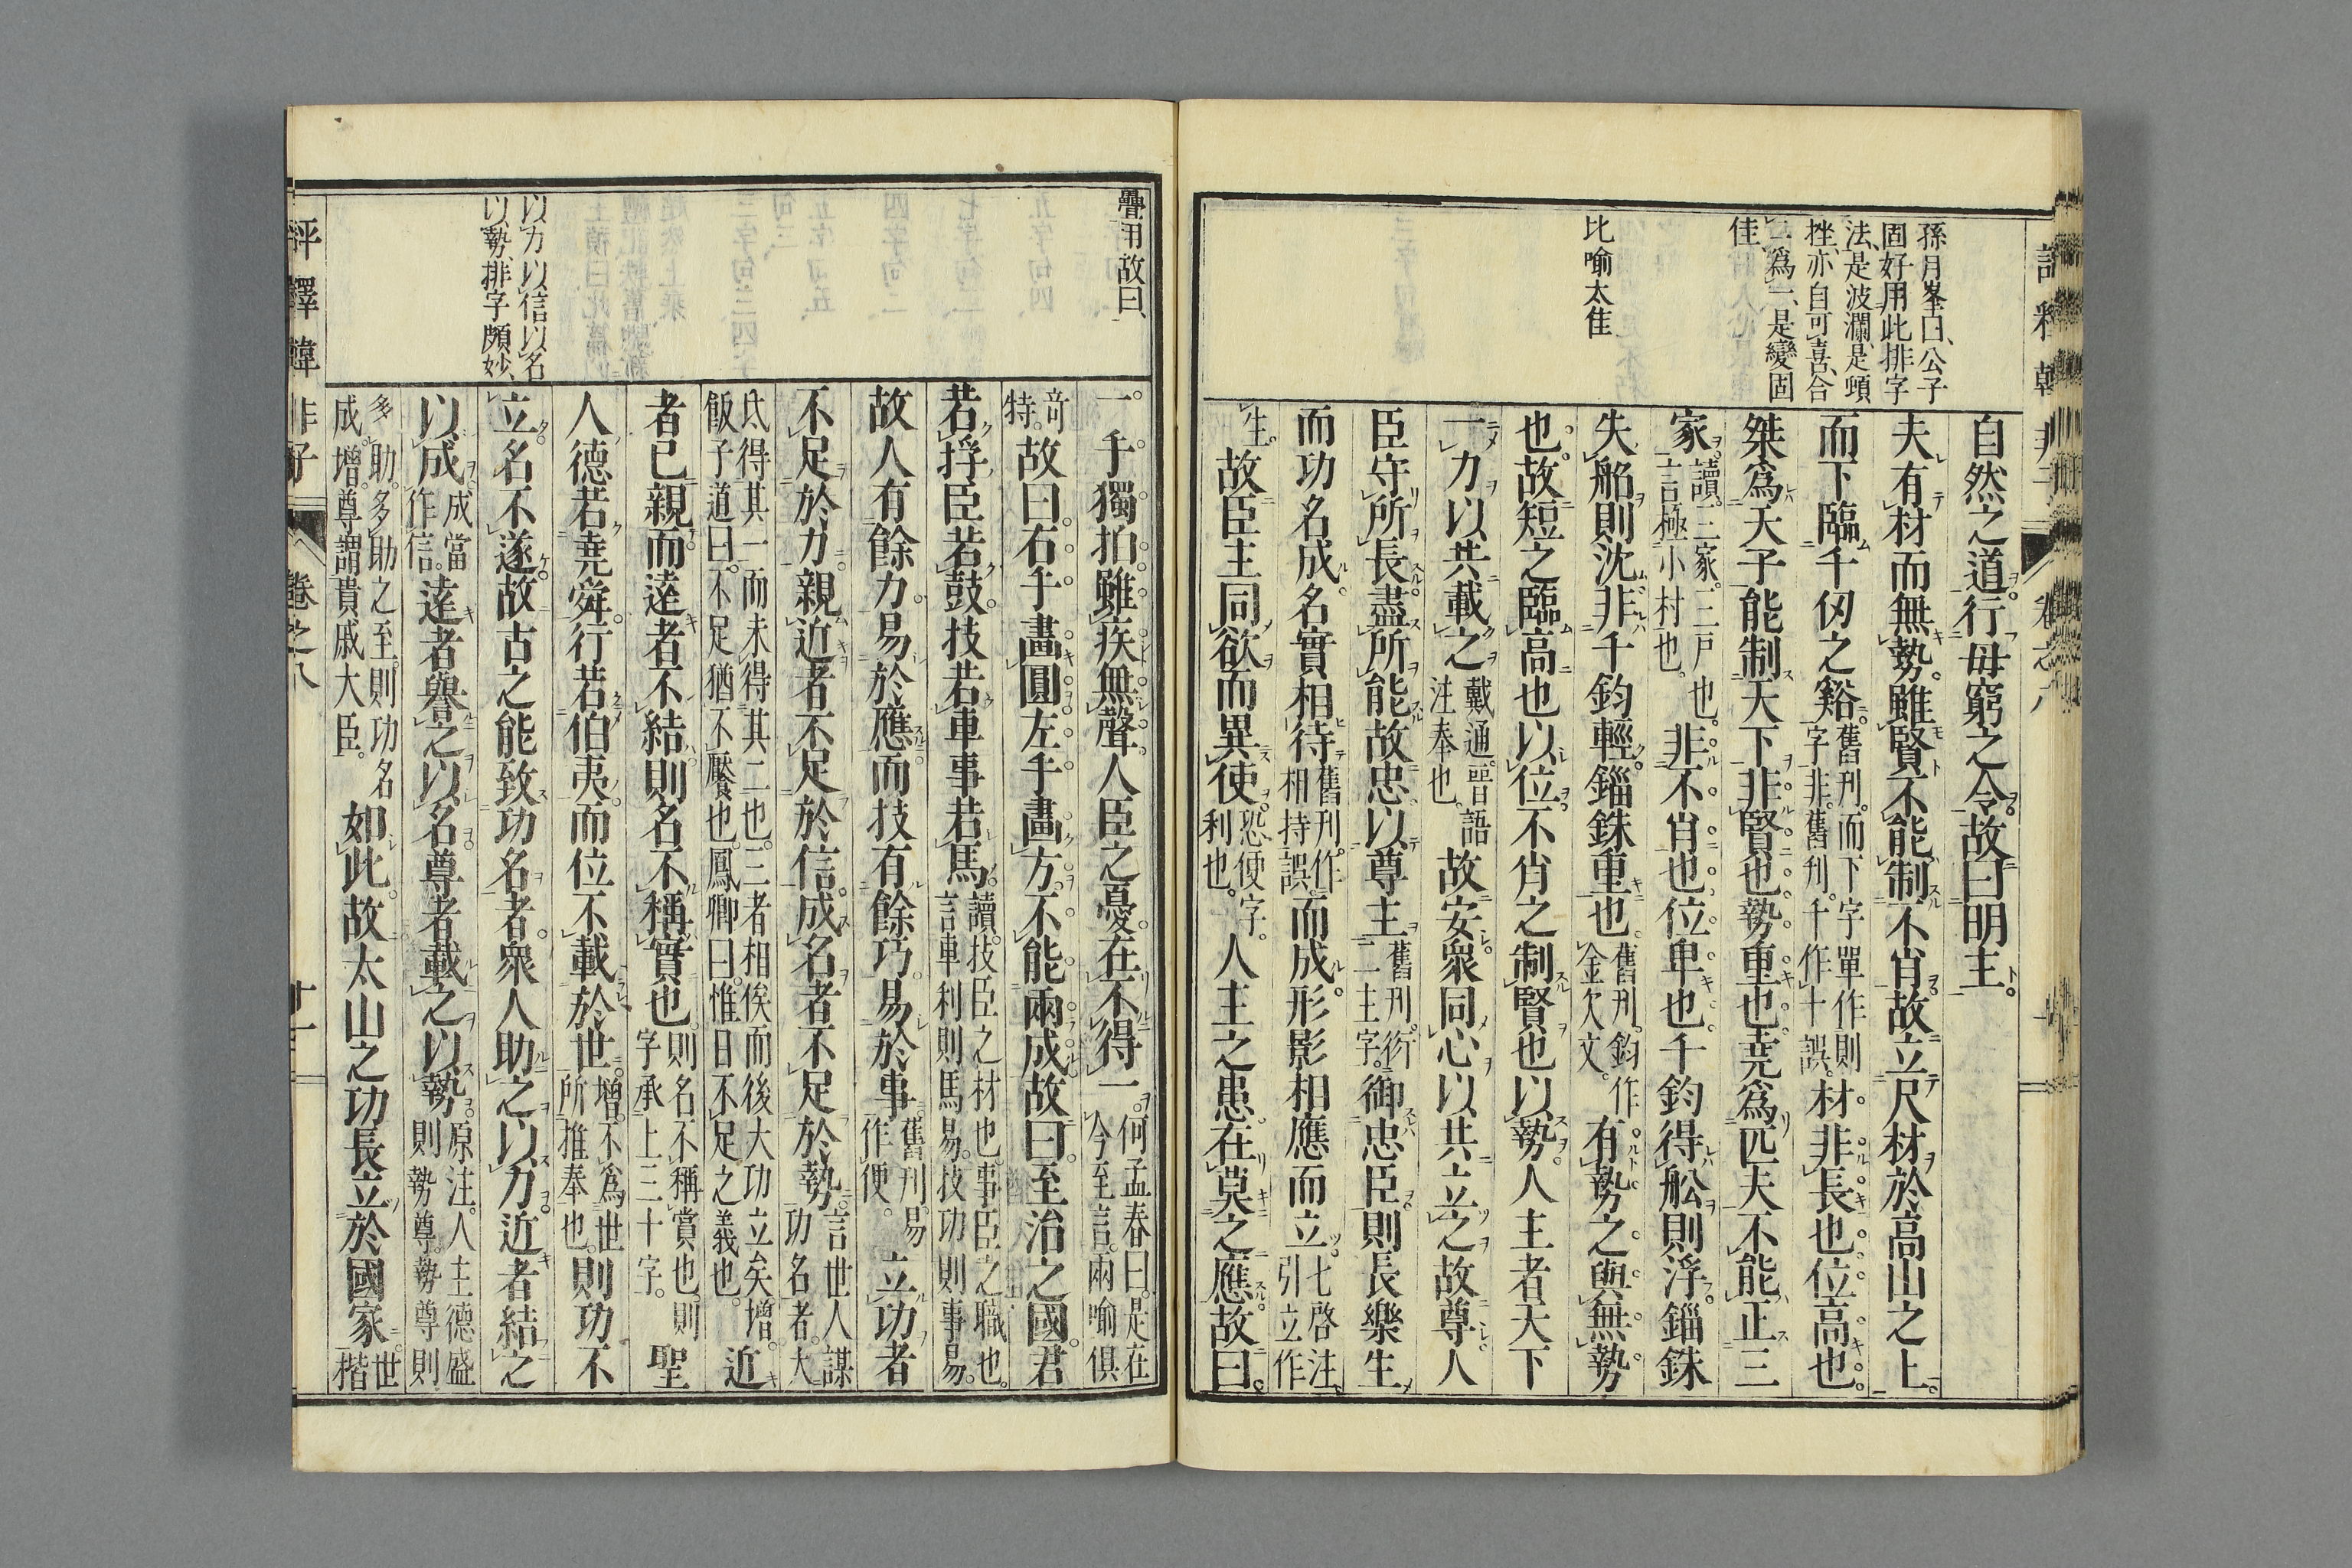 孫月峯曰、公子
固好用此排字
法、是波瀾、是頓
挫、亦自可喜、合
二為一、是變固
佳、
比喻太佳
自然之道。行毋窮之令。故曰明主。
夫有材而無勢。雖賢不能制不肖。故立尺材於高山之上。
而下臨千仞之谿。舊刊。而下字單作則字非。舊刊。千作十誤。材非長也。位高也。
桀爲天子。能制天下。非賢也。勢重也。堯爲匹夫。不能正三
家。讀。三家。三戶也。言極小村也。非不肖也。位卑也。千鈞得船則浮。錙銖
失船則沈。非千鈞輕。錙銖重也。舊刊。鈞作金欠文。有勢之與無勢
也。故短之臨高也以位。不肖之制賢也以勢。人主者天下
一力以共載之。戴通。晉語注奉也。故安。衆同心以共立之。故尊。人
臣守所長。盡所能。故忠。以尊主舊刊。衍一主字。御忠臣。則長樂生
而功名成。名實相待舊刊。作相持誤。而成。形影相應而立。七啓注。引立作
生。故臣主同欲而異使。恐便字。利也。人主之患。在莫之應。故曰。
疊用故曰、
以力以信以名
以勢、排字頗妙、
一手獨拍。雖疾無聲。人臣之憂。在不得一。何孟春曰。是在今至言。兩喻俱
奇特。故曰。右手畫圓。左手畫方。不能兩成。故曰。至治之國。君
若桴。臣若鼓。技若車。事若馬。讀。技臣之材也。事臣之職也。言車利則馬易。技功則事易。
故人有餘力。易於應。而技有餘巧。易於事。舊刊。易作便。立功者
不足於力。親近者不足於信。成名者不足於勢。言世人謀功名者。大
氐得其一而未得其二也。三者相俟而後大功立矣。增。飯子道曰。不足猶不饜也。鳳卿曰。惟日不足之義也。近
者已親。而遠者不結。則名不稱實也。則名不稱賞也。則字承上三十字。聖
人德若堯舜。行若伯夷。而位不載於世。增。不爲世所推奉也。則功不
立。名不遂。故古之能致功名者。衆人助之以力。近者結之
以成。成當作信。遠者譽之以名。尊者載之以勢。原注。人主德盛則勢尊。勢尊則
多助。多助之至。則功名成。增。尊謂貴戚大臣。如此。故太山之功。長立於國家。世楷
評釋韓非子
卷之八
十一